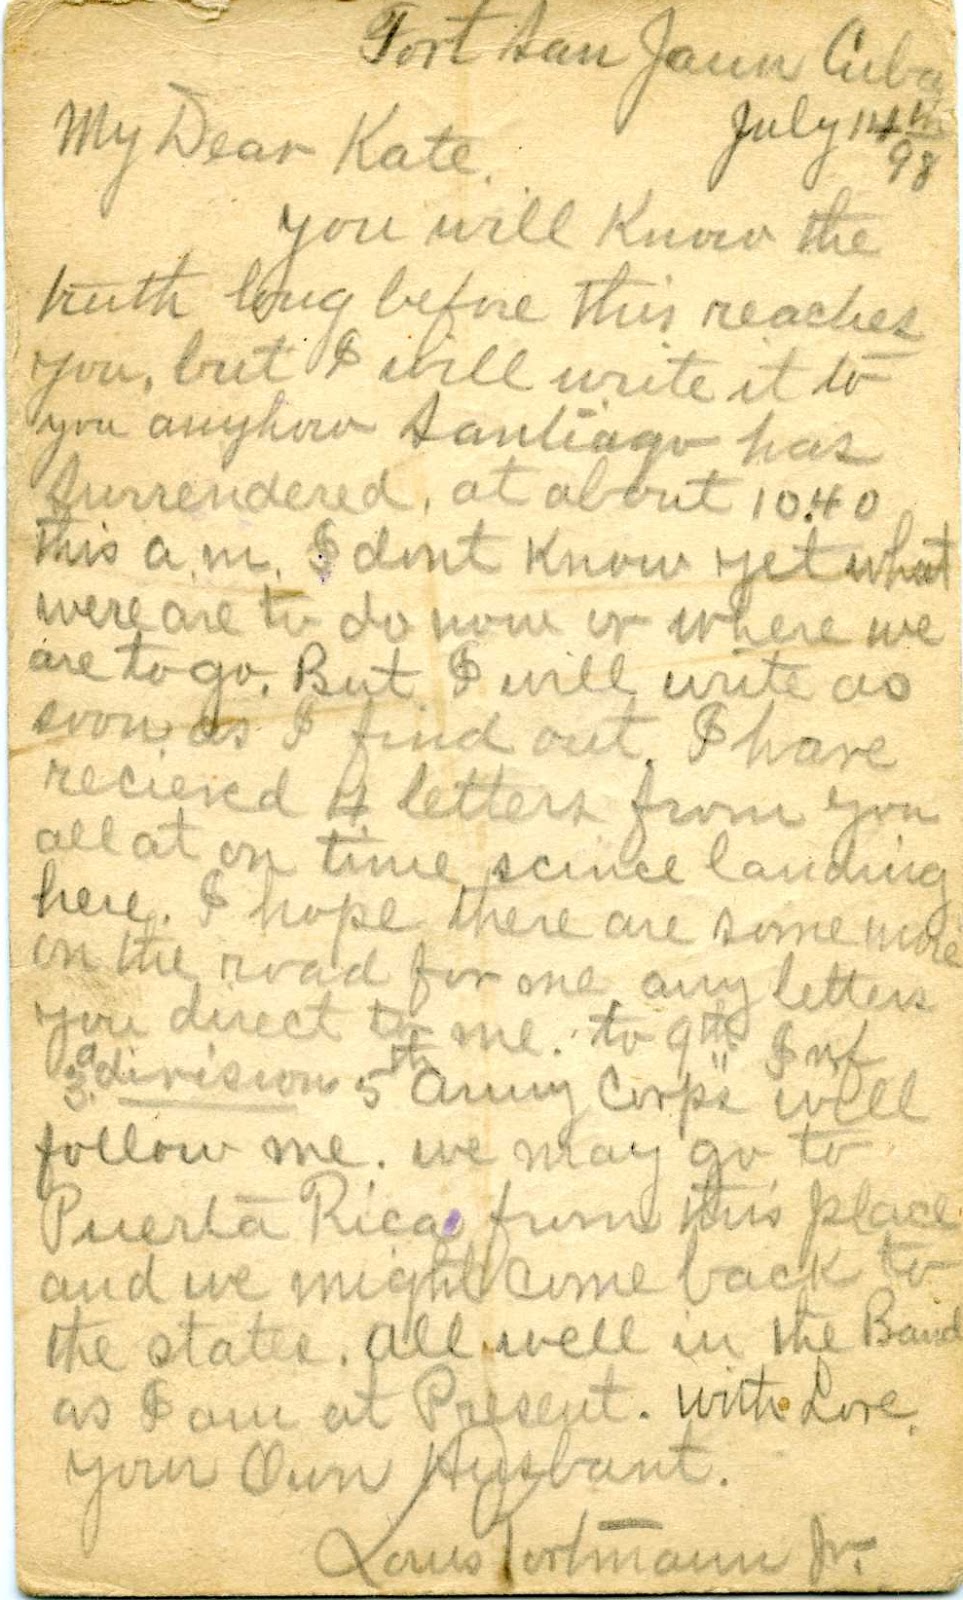 Fort San Jaun Cuba
July 14th
98
My Dear Kate.
you will Know the
truth long before this reaches
you, but I will write it to
you anyhow Santiago has
surrendered, at about 10.40
this a.m. I dont know yet what
were are to do now or where we
are to go. But I will write as
soon as I find out. I have
recieved 4 letters from you
all at on time, scince landing
here. I hope there are some more
on the road for me any letters
you direct to me. to 9th Inf
3d division 5th Army Corps" will
follow me. we may go to
Puerta Rica from this place
and we might come back to
the states. all well in the Band
as I am at Present. with Love.
your Own Husbant.
Louis Jr.